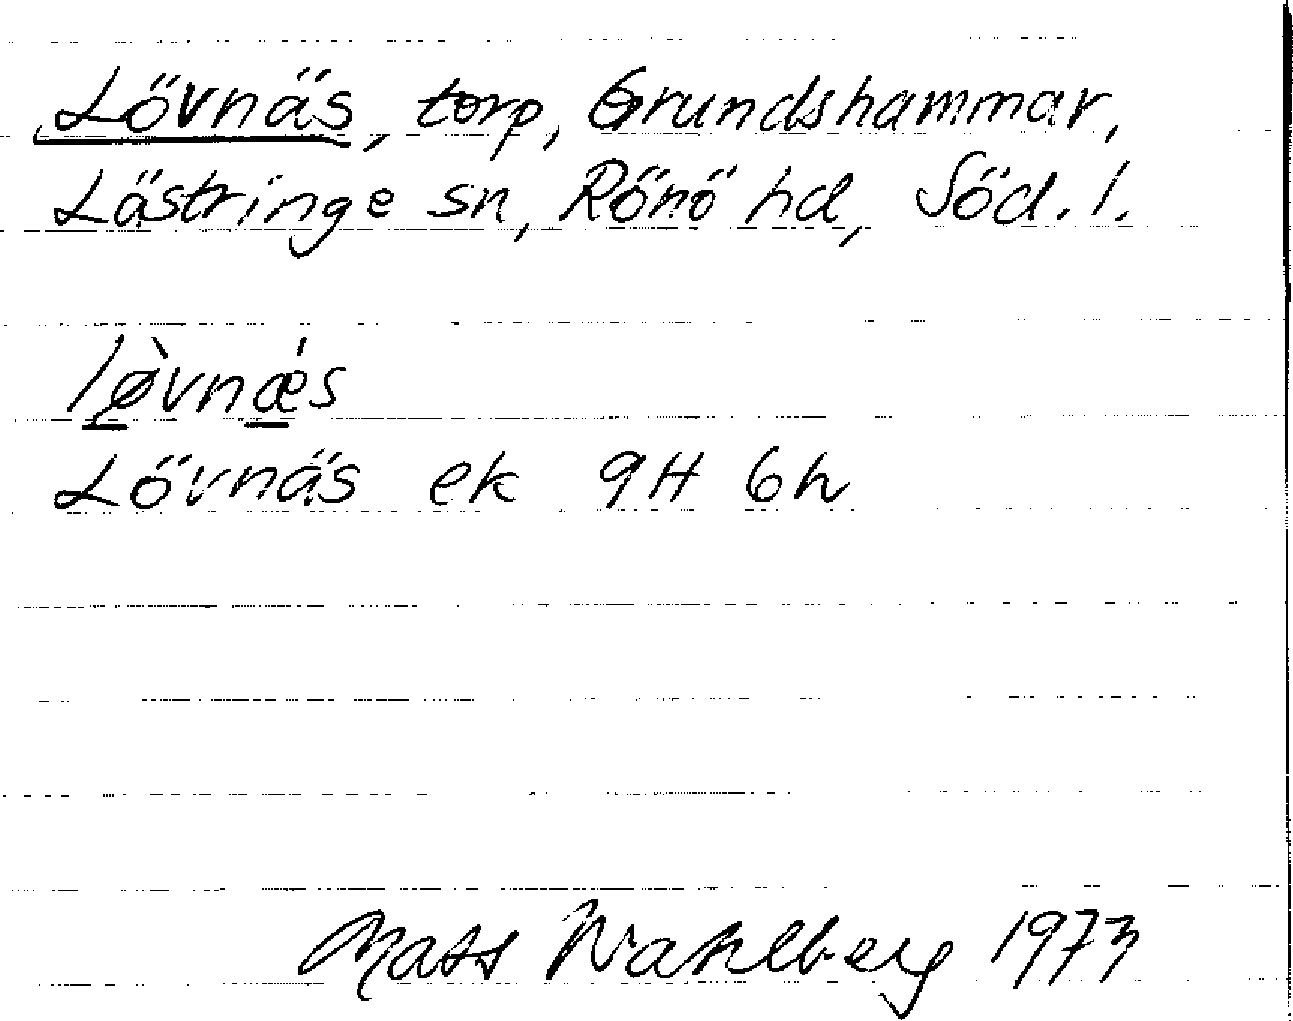 Lövnäs, torp, Grundshammar,
Lästringe sn, Rönö hd, Söd. l.
lø̀vnǽs
Lövnäs ek 9H 6h
Mats Wahlberg 1973